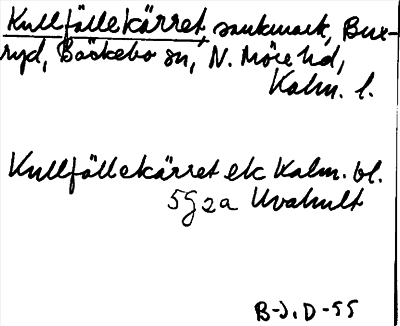 Kullfällekärret, sankmark, Bux-
ryd, Bäckebo sn, N. Möre hd,
Kalm. l.
Kullfällekärret ek Kalm. bl.
5G2a Uvahult
B-J. D-55